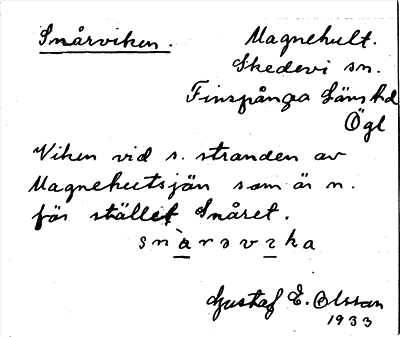 Snårviken.
Magnehult.
Skedevi sn.
Finspånga Läns hd
Ögl
Viken vid s. stranden av
Magnehultsjön som är n.
för stället Snåret.
snàrsvika
Gustaf E. Olsson
1933